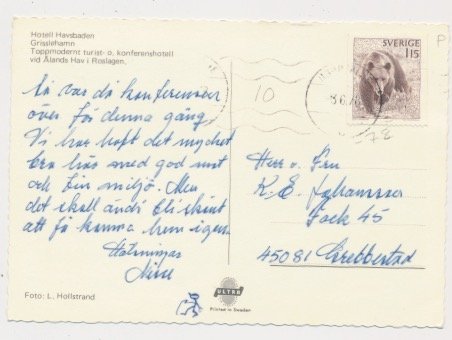 Hotell Havsbaden
Grisslehamn
Toppmodernt turist- o. konferenshotell
vid Ålands Hav i Roslagen.
SVERIGE
115
P
10
8.6.78
Så var då konferensen
över för denna gång.
Vi har haft det mycket
bra här med god mat
och fin miljö. Men
det skall ändå bli skönt
att få komma hem igen.
Hälsningar
Herr o. Fru
K. E. Johansson
Fack 45
45081 Grebbestad
Foto: L. Hollstrand
ULTRA
Printed in Sweden